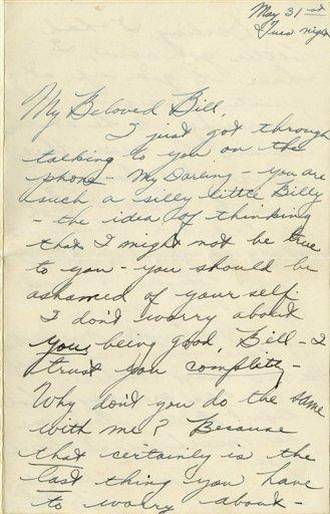 May 31st
Tues night
My Beloved Bill,
I just got through
talking to you on the
phone - My Darling - you are
such a silly little Billy
- the idea of thinking
that I might not be true
to you - you should be
ashamed of your self.
I don't worry about
you, being good, Bill - I
trust you completly -
Why don't you do the same
with me? Because
that certainly is the
last thing you have
to worry about -